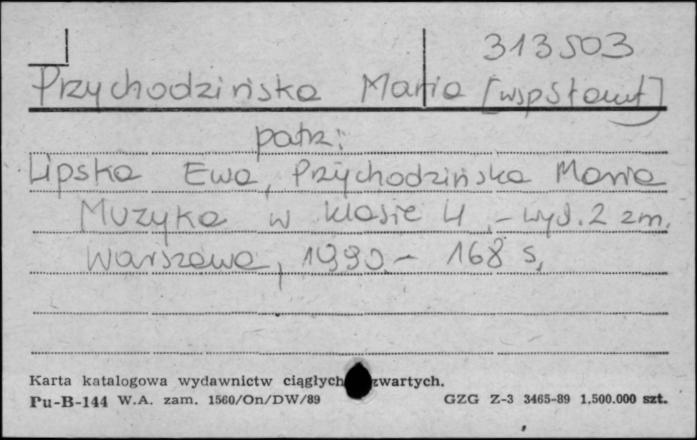 313503
Przychodzińska Maria [współaut]
patrz:
Lipska Ewa, Przychodzińska Maria
Muzyka w klasie 4 .- wyd. 2 zm.
Warszawa, 1990.- 168 s,
Karta katalogowa wydawnictw ciągłych zwartych.
Pu-B-144 W.A. zam. 1560/On/DW/89 GZG Z-3 3465-89 1.500.000 szt.